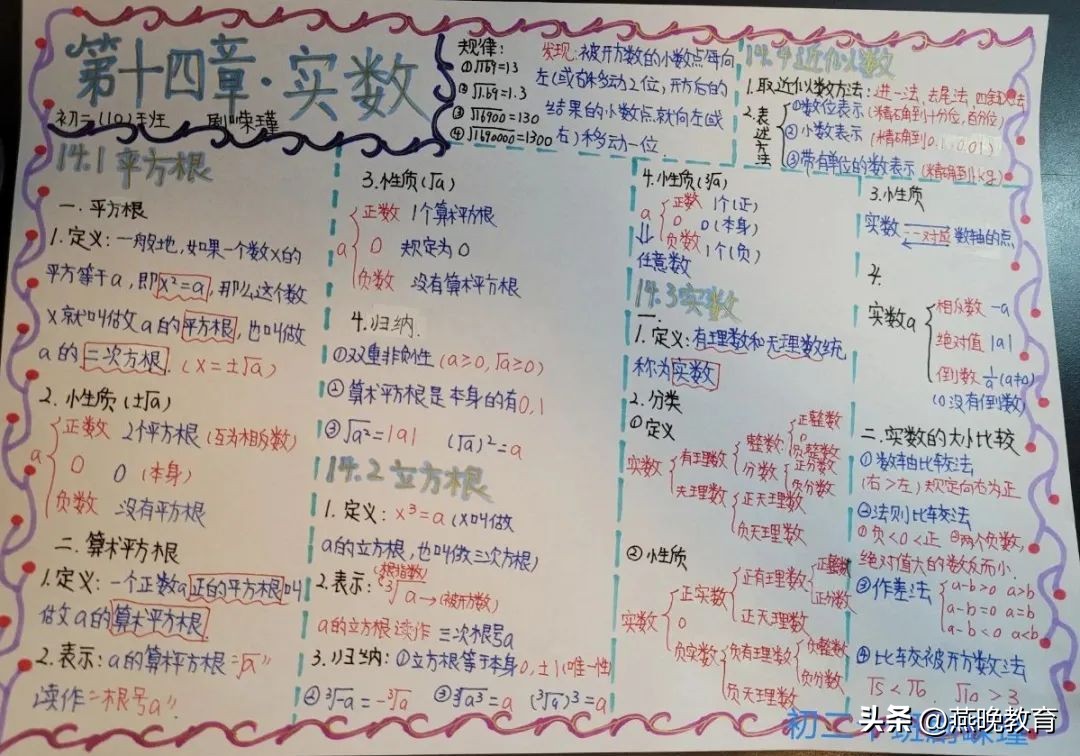 第十四章·实数
初二(10)班
规律:
①√169=13
②√1.69=1.3
③√16900=130
④√1690000=1300
发现:被开方数的小数点每向
左(或右)移动2位,开方后的
结果的小数点就向左(或
右)移动一位
14.4近似数
1.取近似数方法:进一法,去尾法,四舍五入法
2.表述方法
①数位表示(精确到十分位,百分位)
②小数表示(精确到0.1、0.01)
③带有单位的数表示(精确到1kg)
14.1平方根
一.平方根
1.定义:一般地,如果一个数x的
平方等于a,即x²=a,那么这个数
x就叫做a的平方根,也叫做
a的二次方根.(x=±√a)
2.小性质(±√a)
a
正数 2个平方根(互为相反数)
0 0(本身)
负数 没有平方根
二.算术平方根
1.定义:一个正数a正的平方根叫
做a的算术平方根
2.表示:a的算术平方根“√a”
读作“根号a”.
3.小性质(√a)
a
正数 1个算术平方根
0 规定为0
负数 没有算术平方根
4.归纳.
①双重非负性(a≥0,√a≥0)
②算术平方根是本身的有0,1
③√a²=|a| (√a)²=a
14.2立方根
1.定义:x³=a(x叫做
a的立方根,也叫做三次方根)
(根指数)
2.表示:³√a→(被开方数)
a的立方根读作 三次根号a
3.归纳:①立方根等于本身0,±1(唯一性)
②³√-a=-³√a ③³√a³=a (³√a)³=a
4.小性质(³√a)
a
正数 1个(正)
0 0(本身)
负数 1个(负)
任意数
14.3实数
一.
1.定义:有理数和无理数统
称为实数
2.分类
①定义
实数
有理数
整数
正整数
0
负整数
分数
正分数
负分数
无理数
正无理数
负无理数
②小性质
实数
正实数
正有理数
正整数
正分数
正无理数
0
负实数
负有理数
负整数
负分数
负无理数
3.小性质
实数 一一对应 数轴的点
4.
实数a
相反数 -a
绝对值 |a|
倒数 1/a(a≠0)
(0没有倒数)
二.实数的大小比较
①数轴比较法
(右>左)规定向右为正
②法则比较法
①负<0<正 ②两个负数,
绝对值大的数反而小.
③作差法
a-b>0 a>b
a-b=0 a=b
a-b<0 a<b
④比较被开方数法
√5<√6 √10>3
头条 @燕晚教育